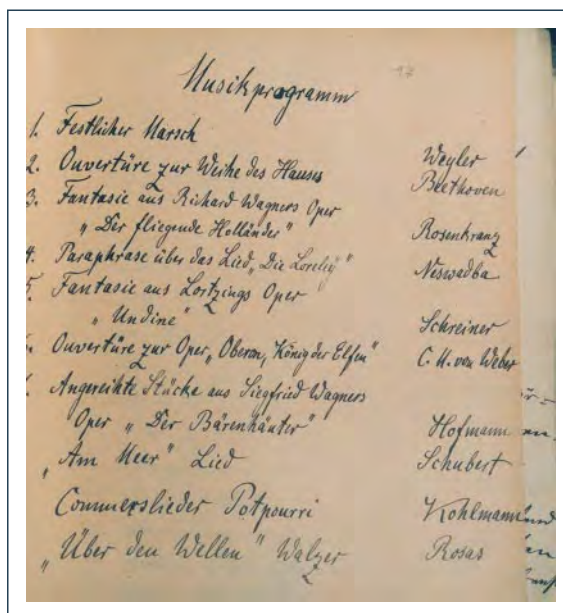 17
Musikprogramm
1. Festlicher Marsch Weyler
2. Ouvertüre zur Weihe des Hauses Beethoven
3. Fantasie aus Richard Wagners Oper
„Der fliegende Holländer" Rosenkranz
4. Paraphrase über das Lied „Die Loreley" Neswadba
5. Fantasie aus Lortzings Oper
„Undine" Schreiner
Ouvertüre zur Oper „Oberon, König der Elfen" C. M. von Weber
Angereihte Stücke aus Siegfried Wagners
Oper „Der Bärenhäuter" Hofmann
„Am Meer" Lied Schubert
Commerslieder Potpourri Kohlmann
„Über den Wellen" Walzer Rosas